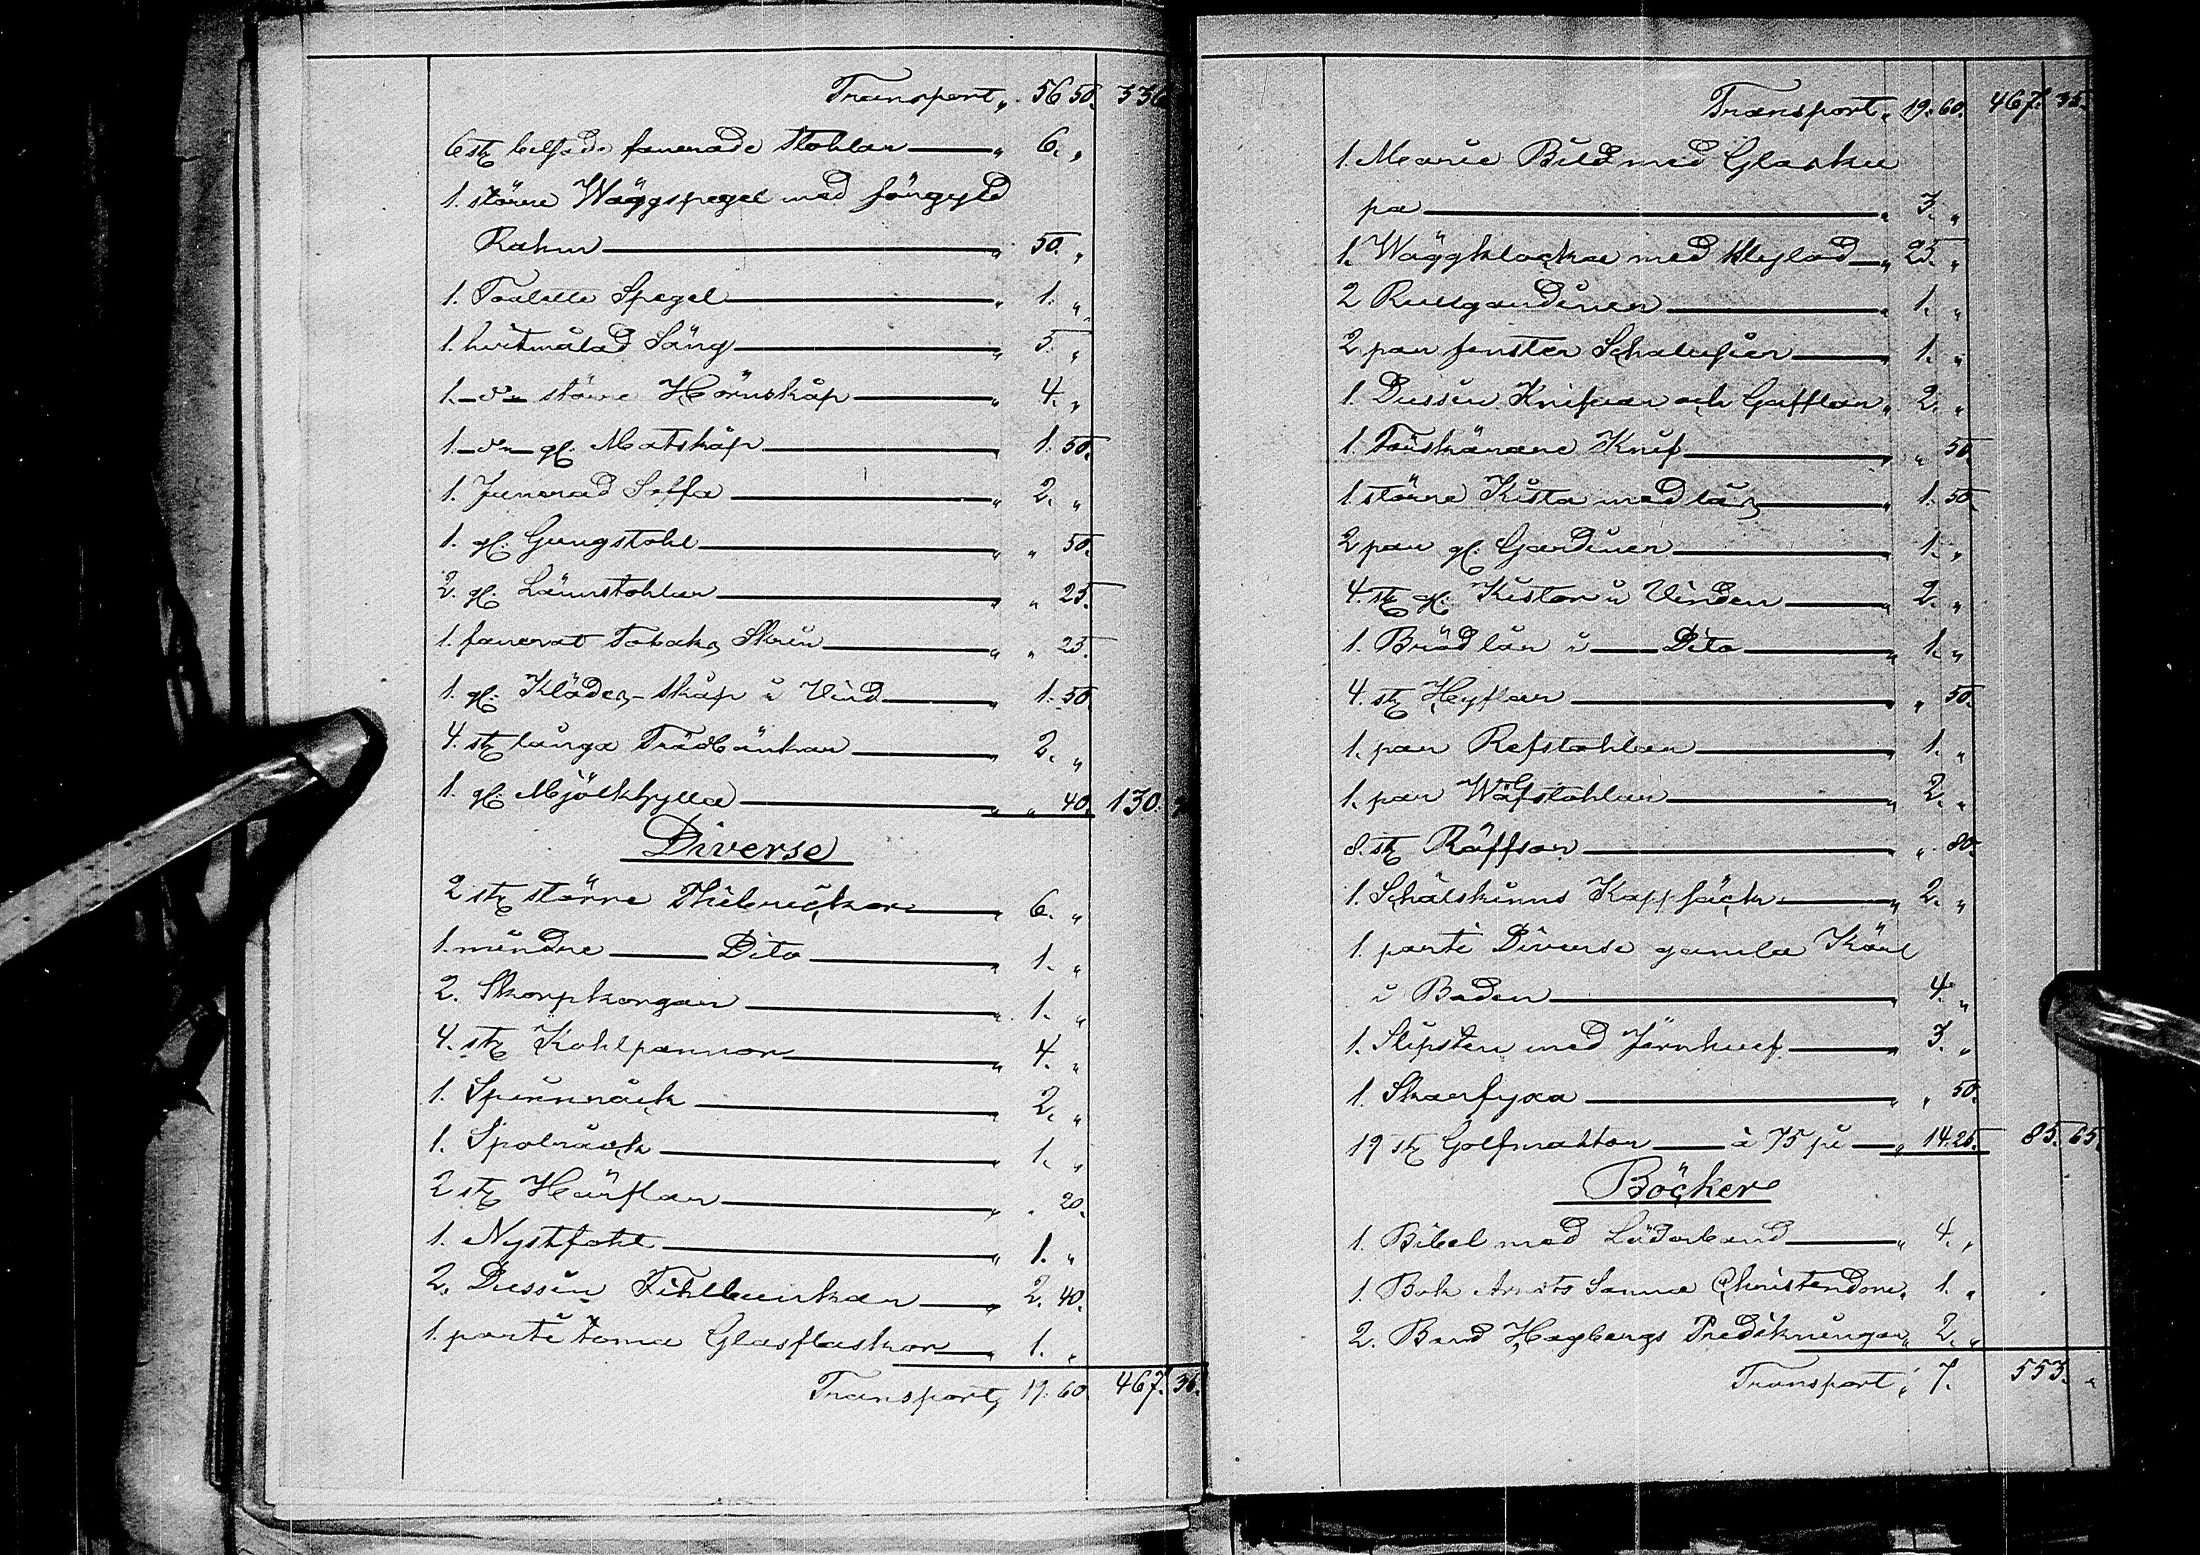 Transport „ 56 50. 336
6 st; fanerade Stohlar „ 6. „
1. större Wäggspegel med förgyld
Rahm „ 50. „
1. Toalette Spegel „ 1. „
1. hvitmålad Säng „ 5. „
1. – d:o större Hörnskåp „ 4. „
1. – d:o gl. Matskåp „ 1. 50.
1. Soffa „ 2. „
1. gl. Gungstohl „ „ 50.
2. gl. Länstohlar „ „ 25.
1. fanerat Tobaks Skrin „ „ 25.
1. gl. Kläder-skåp i Vind „ 1. 50.
4. st; långa Trädbänkar „ 2. „
1. gl. Mjölkhylla „ „ 40. 130.
Diverse
2 st; större Thebrickor „ 6. „
1. mindre Dito „ 1. „
2. Skorpkorgar „ 1. „
4. st; Kohlpannor „ 4. „
1. Spinnråck „ 2. „
1. Spolråck „ 1. „
2 st; Härflar „ „ 20.
1. Nystfohl „ 1. „
2. Dussin Fihlbunkar „ 2. 40.
1. parti toma Glasflaskor „ 1. „
Transport, 19. 60. 467. 35.
Transport „ 19. 60. 467. 35.
1. Marie Bild med Glasku
pa „ 3. „
1. Wäggklocka med „ 25. „
2 Rullgardiner „ 1. „
2 par fenster Schalusier „ 1. „
1. Dussin Knifvar och Gafflar „ 2. „
1. Förskärare Knif „ „ 50.
1. större Kista med lås „ 1. 50.
2 par gl. Gardiner „ 1. „
4. st; gl. Kistor i Vinden „ 2. „
1. Brödlår i Dito „ 1. „
4. st; Hyflar „ „ 50.
1. par Refstohlar „ 1. „
1. par Wäfstohlar „ 2. „
8. st; Räffsor „ „ 80.
1. Schälskinns Kappsäck „ 2. „
1 parti Diverse gamla Kärl
i Boden „ 4. „
1. Slipsten med Järnhvef „ 3. „
1. Skarfyxa „ „ 50.
19 st; Golfmattor à 75 pi „ 14. 25. 85. 65.
Böcker
1. Bibel med Läderband „ 4. „
1. Bok Arndts Sanna Christendom „ 1. „
2. Band Hagbergs Predikningar „ 2. „
Transport „ 7. 553. „